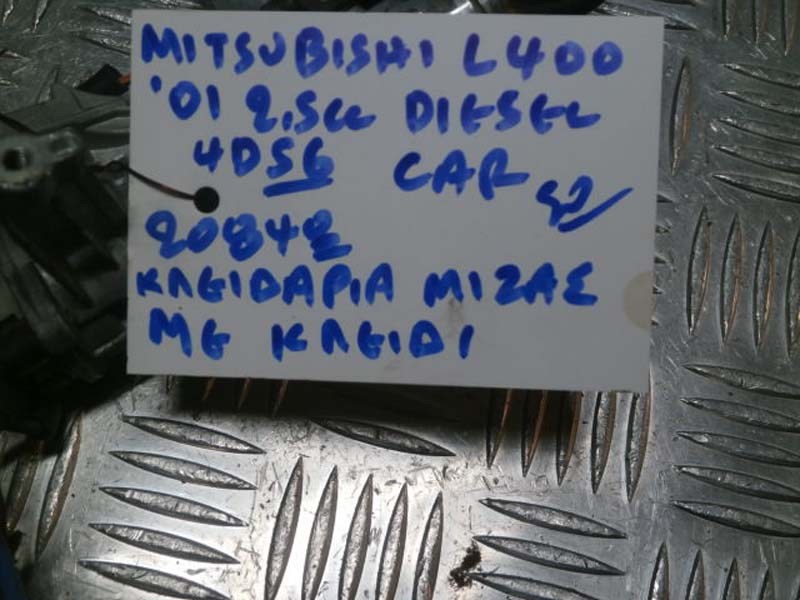 MITSUBISHI L400
'01 2.5cc DIESEL
4D56 CAR
20842
ΚΛΕΙΔΑΡΙΑ ΜΙΖΑΣ
ΜΕ ΚΛΕΙΔΙ